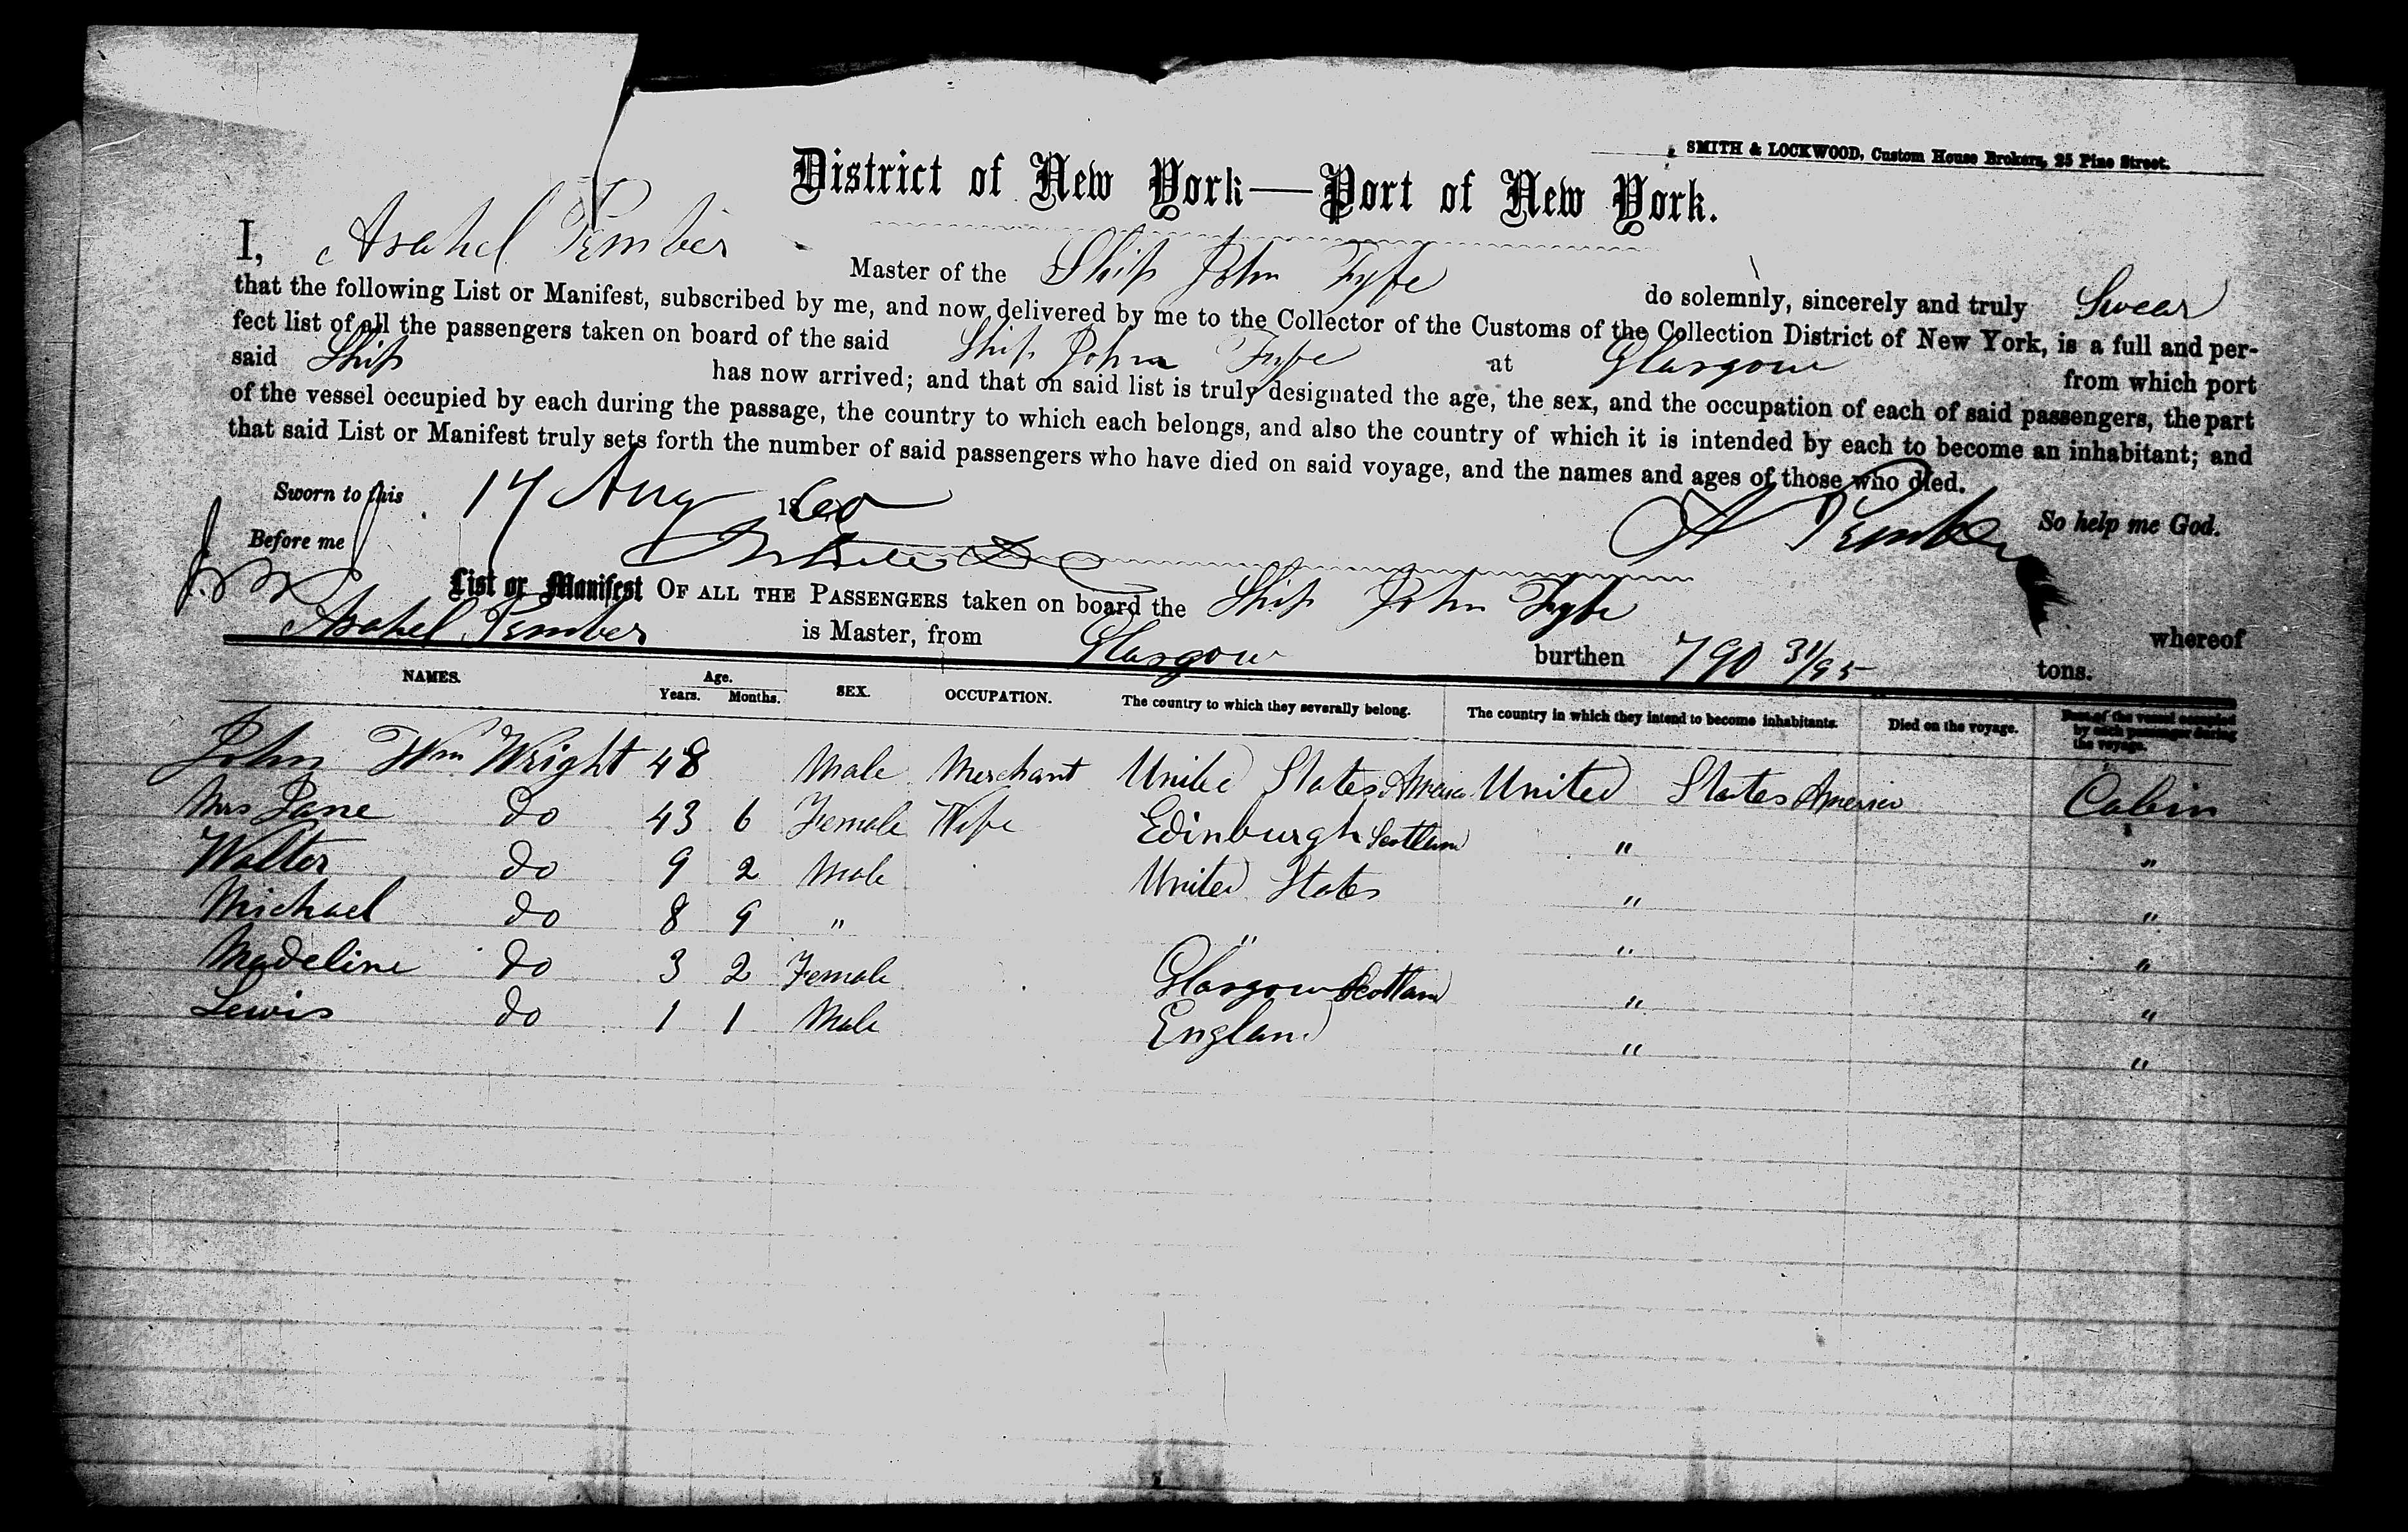 SMITH & LOCKWOOD, Custom House Brokers, 25 Pine Street.
District of New York—Port of New York.
I, Asahel Pember Master of the Ship John Fyfe do solemnly, sincerely and truly Swear
that the following List or Manifest, subscribed by me, and now delivered by me to the Collector of the Customs of the Collection District of New York, is a full and per-
fect list of all the passengers taken on board of the said Ship John Fyfe at Glasgow from which port
said Ship has now arrived; and that on said list is truly designated the age, the sex, and the occupation of each of said passengers, the part
of the vessel occupied by each during the passage, the country to which each belongs, and also the country of which it is intended by each to become an inhabitant; and
that said List or Manifest truly sets forth the number of said passengers who have died on said voyage, and the names and ages of those who died.
Sworn to this 17 Aug 1860 So help me God.
Before me A Pember
List or Manifest OF ALL THE PASSENGERS taken on board the Ship John Fyfe whereof
Asahel Pember is Master, from Glasgow burthen 790 31/95 tons.
NAMES. Age. Years. Months. SEX. OCCUPATION. The country to which they severally belong. The country in which they intend to become inhabitants. Died on the voyage. Part of the vessel occupied by each passenger during the voyage.
John Wm Wright 48 Male Merchant United States America United States America Cabin
Mrs Jane do 43 6 Female Wife Edinburgh Scotland " "
Walter do 9 2 Male United States " "
Michael do 8 9 " " " "
Madeline do 3 2 Female Glasgow Scotland " "
Lewis do 1 1 Male England " "